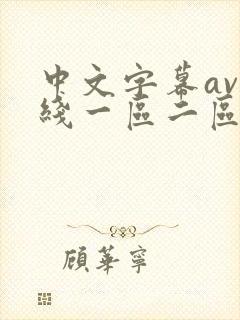 中文字幕av
綫一區二區
顧華寧